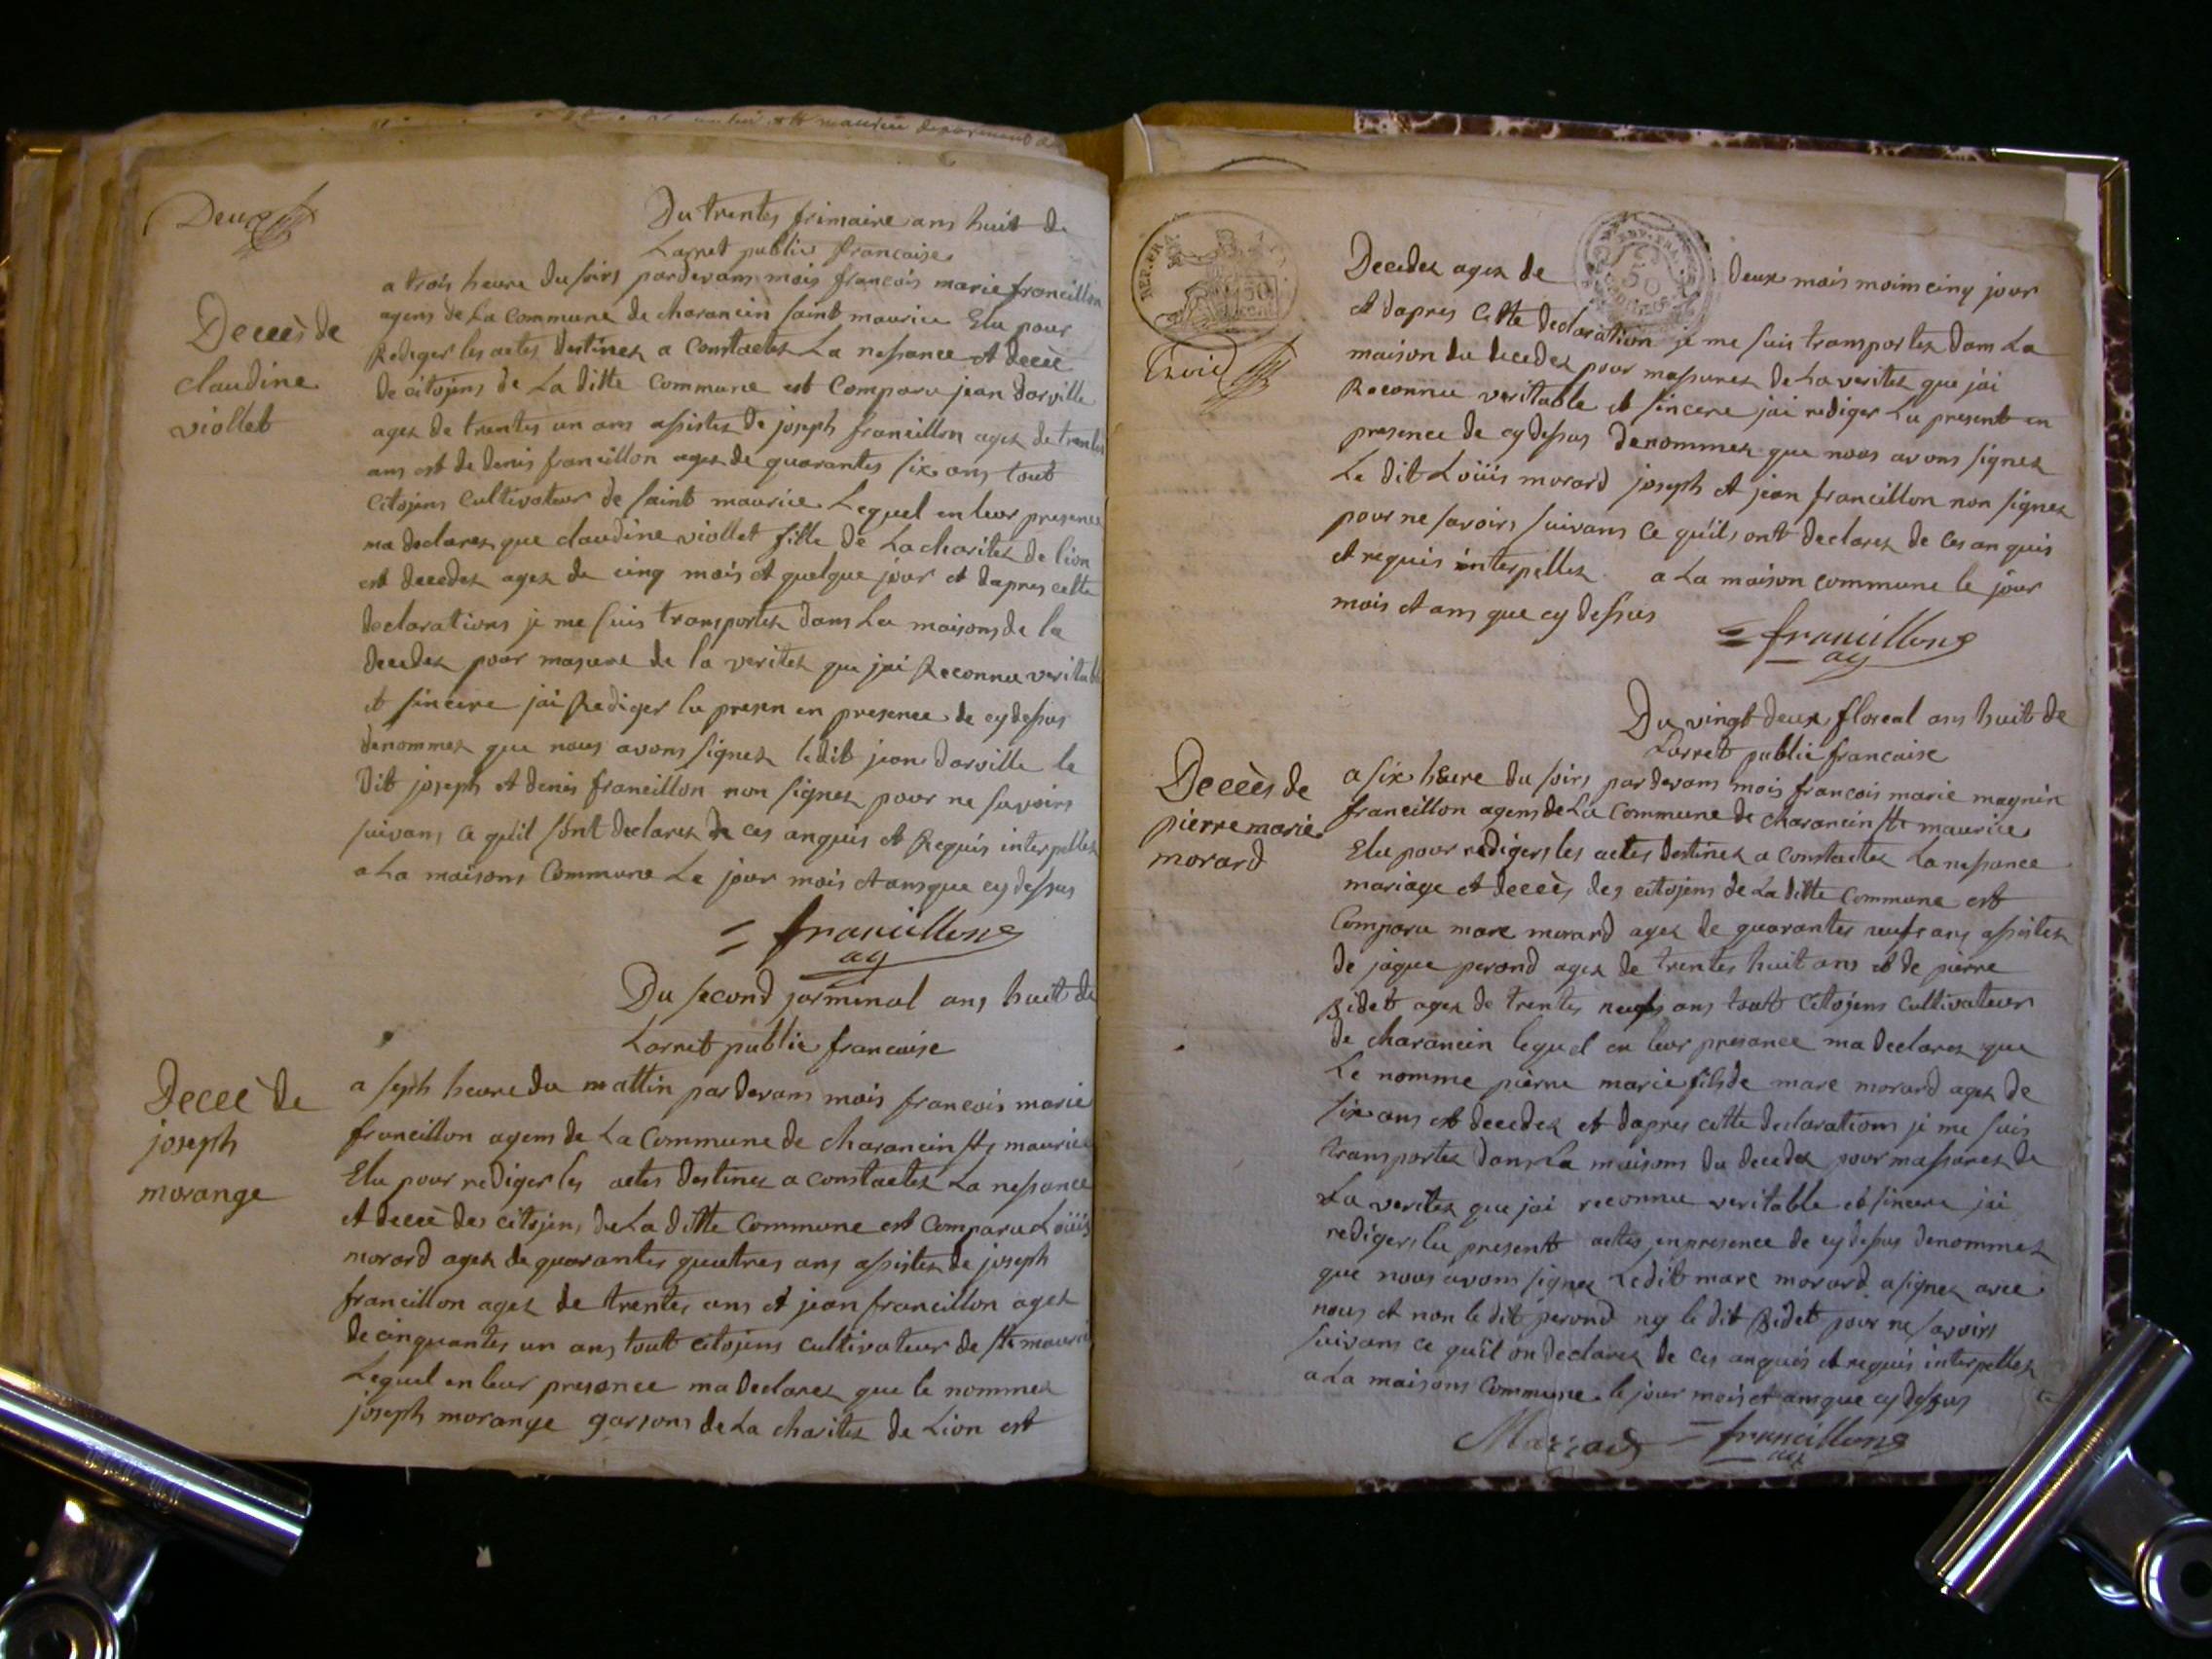 Deux
Du trentes frimaire ans huit de
Larret public francaise
Decès de
claudine
viollet
a trois heure du soirs pardevans mois francois marie francillon
agens de La Commune de charancin saint maurice Elu pour
Rediger les actes destinez a constactez La nessance et decèe
de citojens de La ditte Commune est Comparu jean dorville
agez de trentes un ans assistez de joseph francillon agez de trentes
ans est de denis francillon agez de quarantes six ans tout
Citojens cultivateur de saint maurice Lequel en leur presence
ma declarez que claudine viollet fille de La charitez de lion
est decedez agez de cinq mois et quelque jour et dapres cette
declarations je me suis transportez dans La maisons de la
decedez pour masurez de la veritez que jai Reconnu veritable
et sincere jai Rediger lu presen en presence de cy dessus
denommez que nous avons signez ledit jean dorville le
dit joseph et denis francillon non signez pour ne savoirs
suivans ce quil sont declarez de ces anquis et Requis interpellez
a La maisons Commune Le jour mois et ans que cy dessus
= francillon
ag
Du second jarminal ans huit de
Larret public francaise
Deceè de
joseph
morange
a seph heure du mattin pardevans mois francois marie
francillon agens de La Commune de charancin ste maurice
Elu pour rediger les actes destinez a constactez La nessance
et deceè des citojens de La ditte Commune est Comparu Loüis
morard agez de quarantes quatres ans assistez de joseph
francillon agez de trentes ans et jean francillon agez
de cinquantes un ans tout citojens cultivateur de ste maurice
Lequel en leur presance ma declarez que le nommez
joseph morange garsons de La charitez de Lion est
REP. FRA.
50
50
Trois
Decedez agez de deux mois moins cinq jour
et dapres Cette declaration je me suis transportez dans La
maison du decedez pour massurez de La veritez que jai
Reconnu veritable et sincere jai rediger Lu present en
presence de cy dessus denommez que nous avons signez
Le dit Loüis morard joseph et jean francillon non signez
pour ne savoirs suivans ce quils ont declarez de ces anquis
et requis interpellez a La maison commune le jour
mois et ans que cy dessus
= francillon
ag
Du vingt deux floreal ans huit de
Larret public francaise
Decèès de
pierre marie
morard
a six heure du soirs pardevans mois francois marie magnin
francillon agens de La Commune de charancin ste maurice
Elu pour redigers les actes destinez a constactez La nessance
mariage et decèès des citojens de La ditte Commune est
Comparu marc morard agez de quarantes neufs ans assistez
de jaque perond agez de trentes huit ans et de pierre
Bidet agez de trentes neufs ans tout Citojens cultivateur
de charancin lequel en leur presance ma declarez que
Le nomme pierre marie fils de marc morard agez de
six ans est decedez et dapres cette declarations je me suis
transportez dans La maisons du decedez pour massurez de
La veritez que jai reconnu veritable et sincere jai
redigers lu present actes en presence de cy dessus denommez
que nous avons signez Ledit marc morard a signez avec
nous et non le dit perond ny le dit Bidet pour ne savoirs
suivans ce quil on declarez de ces anquis et requis interpellez
a La maisons Commune le jour mois et ans que cy dessus
Morard = francillon